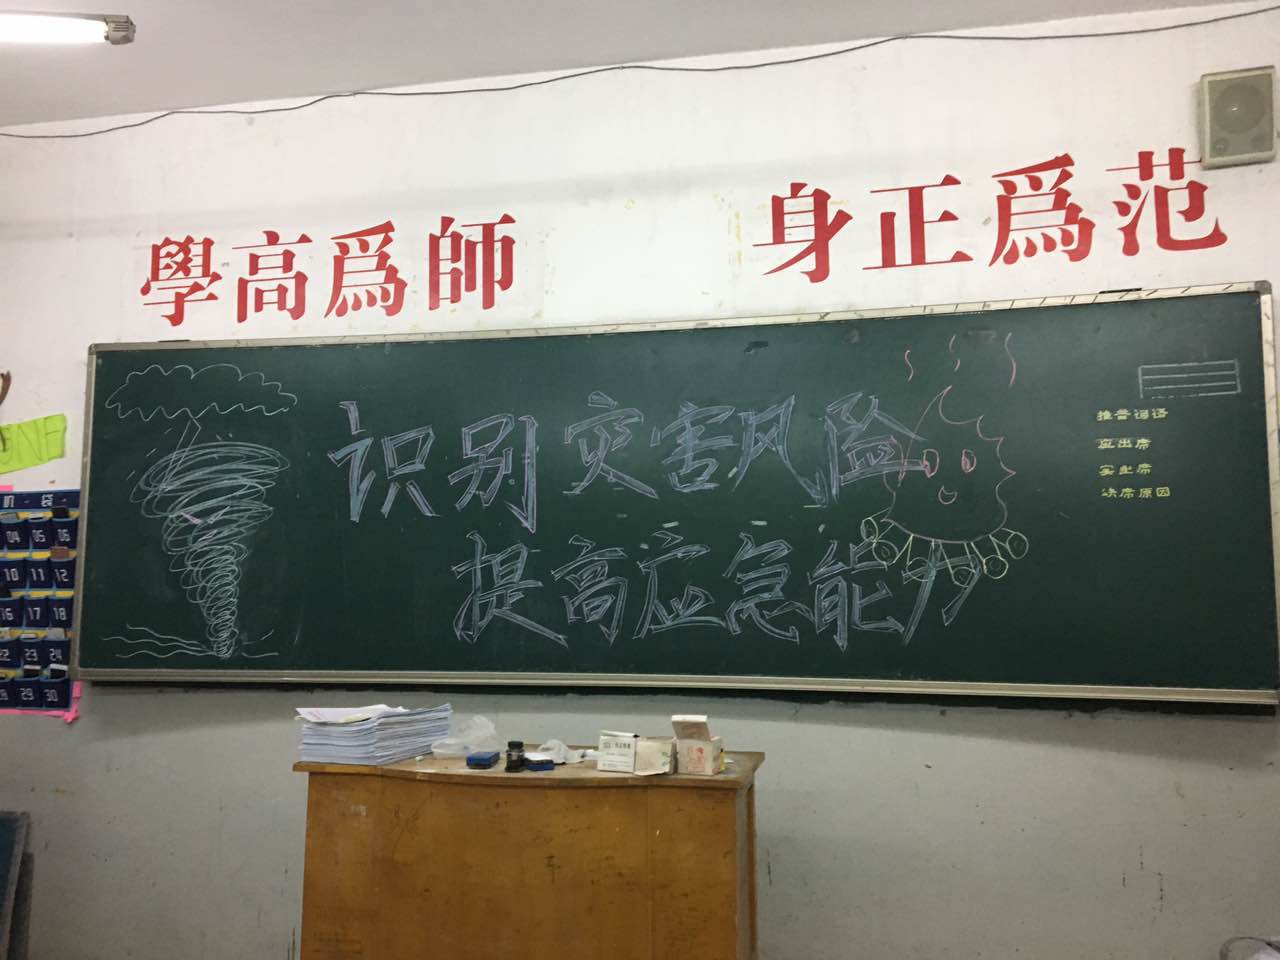 學高爲師
身正爲范
识别灾害风险
提高应急能力
推普词语
应出席
实出席
决席原因
机 袋
04 05 06
10 11 12
16 17 18
22 23 24
28 29 30